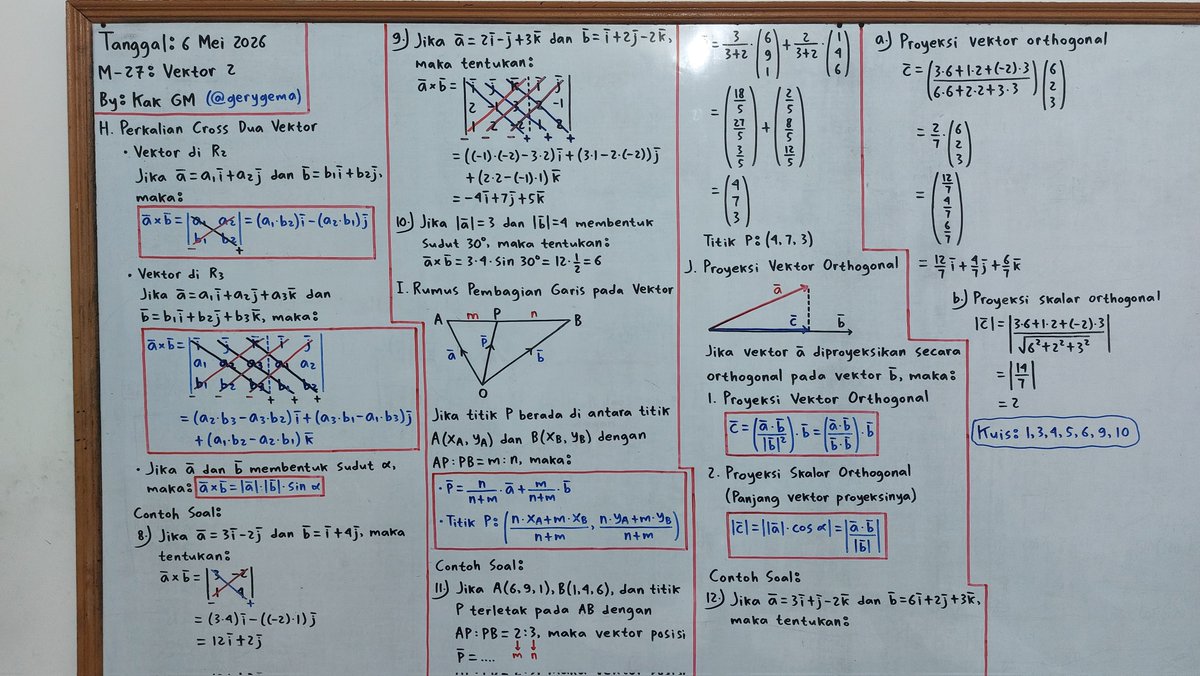 Tanggal: 6 Mei 2026
M-27: Vektor 2
By: Kak GM (@gerygema)
H. Perkalian Cross Dua Vektor
• Vektor di R₂
Jika ā = a₁ī + a₂j̄ dan b̄ = b₁ī + b₂j̄,
maka:
ā × b̄ = |a₁ a₂| = (a₁·b₂)ī − (a₂·b₁)j̄
|b₁ b₂|
− +
• Vektor di R₃
Jika ā = a₁ī + a₂j̄ + a₃k̄ dan
b̄ = b₁ī + b₂j̄ + b₃k̄, maka:
ā × b̄ = |ī j̄ k̄ ī j̄|
|a₁ a₂ a₃ a₁ a₂|
|b₁ b₂ b₃ b₁ b₂|
− − − + + +
= (a₂·b₃ − a₃·b₂)ī + (a₃·b₁ − a₁·b₃)j̄
+ (a₁·b₂ − a₂·b₁)k̄
• Jika ā dan b̄ membentuk sudut α,
maka: ā × b̄ = |ā|·|b̄|·sin α
Contoh Soal:
8.) Jika ā = 3ī − 2j̄ dan b̄ = ī + 4j̄, maka
tentukan:
ā × b̄ = |3 −2|
|1 4|
− +
= (3·4)ī − ((−2)·1)j̄
= 12ī + 2j̄
9.) Jika ā = 2ī − j̄ + 3k̄ dan b̄ = ī + 2j̄ − 2k̄,
maka tentukan:
ā × b̄ = |ī j̄ k̄ ī j̄|
|2 −1 3 2 −1|
|1 2 −2 1 2|
− − − + + +
= ((−1)·(−2) − 3·2)ī + (3·1 − 2·(−2))j̄
+ (2·2 − (−1)·1)k̄
= −4ī + 7j̄ + 5k̄
10.) Jika |ā| = 3 dan |b̄| = 4 membentuk
sudut 30°, maka tentukan:
ā × b̄ = 3·4·sin 30° = 12·1/2 = 6
I. Rumus Pembagian Garis pada Vektor
A m P n B
ā p̄ b̄
O
Jika titik P berada di antara titik
A(x_A, y_A) dan B(x_B, y_B) dengan
AP:PB = m:n, maka:
• P̄ = n/(n+m)·ā + m/(n+m)·b̄
• Titik P: ((n·x_A + m·x_B)/(n+m), (n·y_A + m·y_B)/(n+m))
Contoh Soal:
11.) Jika A(6,9,1), B(1,4,6), dan titik
P terletak pada AB dengan
AP:PB = 2:3, maka vektor posisi
P̄ = .... m n
= 3/(3+2)·(6 9 1) + 2/(3+2)·(1 4 6)
= (18/5 27/5 3/5) + (2/5 8/5 12/5)
= (4 7 3)
Titik P: (4, 7, 3)
J. Proyeksi Vektor Orthogonal
ā
c̄ b̄
Jika vektor ā diproyeksikan secara
orthogonal pada vektor b̄, maka:
1. Proyeksi Vektor Orthogonal
c̄ = (ā·b̄/|b̄|²)·b̄ = (ā·b̄/b̄·b̄)·b̄
2. Proyeksi Skalar Orthogonal
(Panjang vektor proyeksinya)
|c̄| = ||ā|·cos α| = |ā·b̄/|b̄||
Contoh Soal:
12.) Jika ā = 3ī + j̄ − 2k̄ dan b̄ = 6ī + 2j̄ + 3k̄,
maka tentukan:
a.) Proyeksi vektor orthogonal
c̄ = ((3·6 + 1·2 + (−2)·3)/(6·6 + 2·2 + 3·3))(6 2 3)
= 2/7·(6 2 3)
= (12/7 4/7 6/7)
= 12/7 ī + 4/7 j̄ + 6/7 k̄
b.) Proyeksi skalar orthogonal
|c̄| = |(3·6 + 1·2 + (−2)·3)/√(6² + 2² + 3²)|
= |14/7|
= 2
Kuis: 1, 3, 4, 5, 6, 9, 10